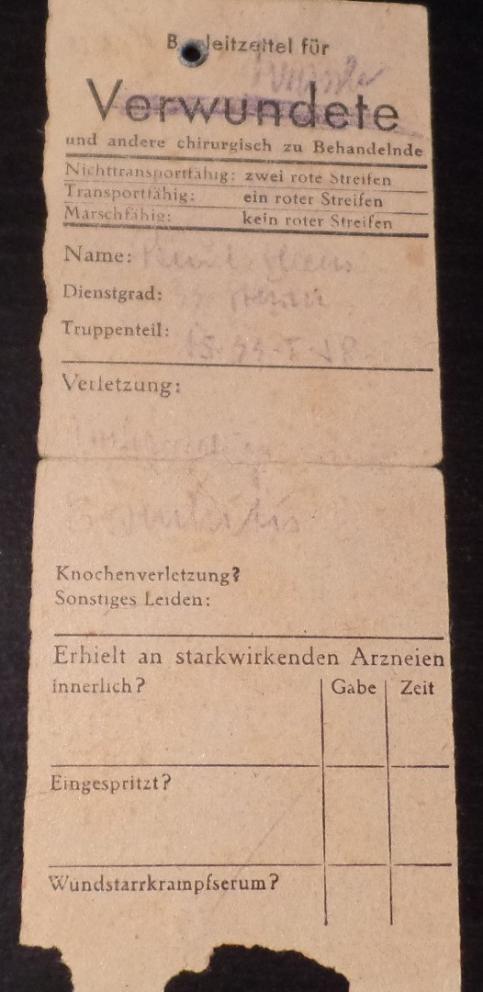 Begleitzettel für
Verwundete
und andere chirurgisch zu Behandelnde
Nichttransportfähig: zwei rote Streifen
Transportfähig: ein roter Streifen
Marschfähig: kein roter Streifen
Name:
Dienstgrad:
Truppenteil:
Verletzung:
Knochenverletzung?
Sonstiges Leiden:
Erhielt an starkwirkenden Arzneien
innerlich? Gabe Zeit
Eingespritzt?
Wundstarrkrampfserum?